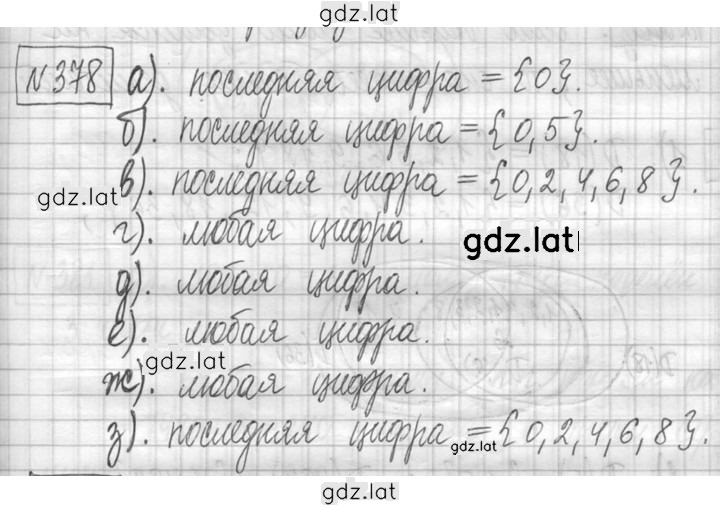 gdz.lat
N 378 а). последняя цифра = {0}.
б). последняя цифра = {0, 5}.
в). последняя цифра = {0, 2, 4, 6, 8}.
gdz.lat
г). любая цифра.
gdz.lat
д). любая цифра.
е). любая цифра.
gdz.lat
ж). любая цифра.
з). последняя цифра = {0, 2, 4, 6, 8}.
gdz.lat
gdz.lat